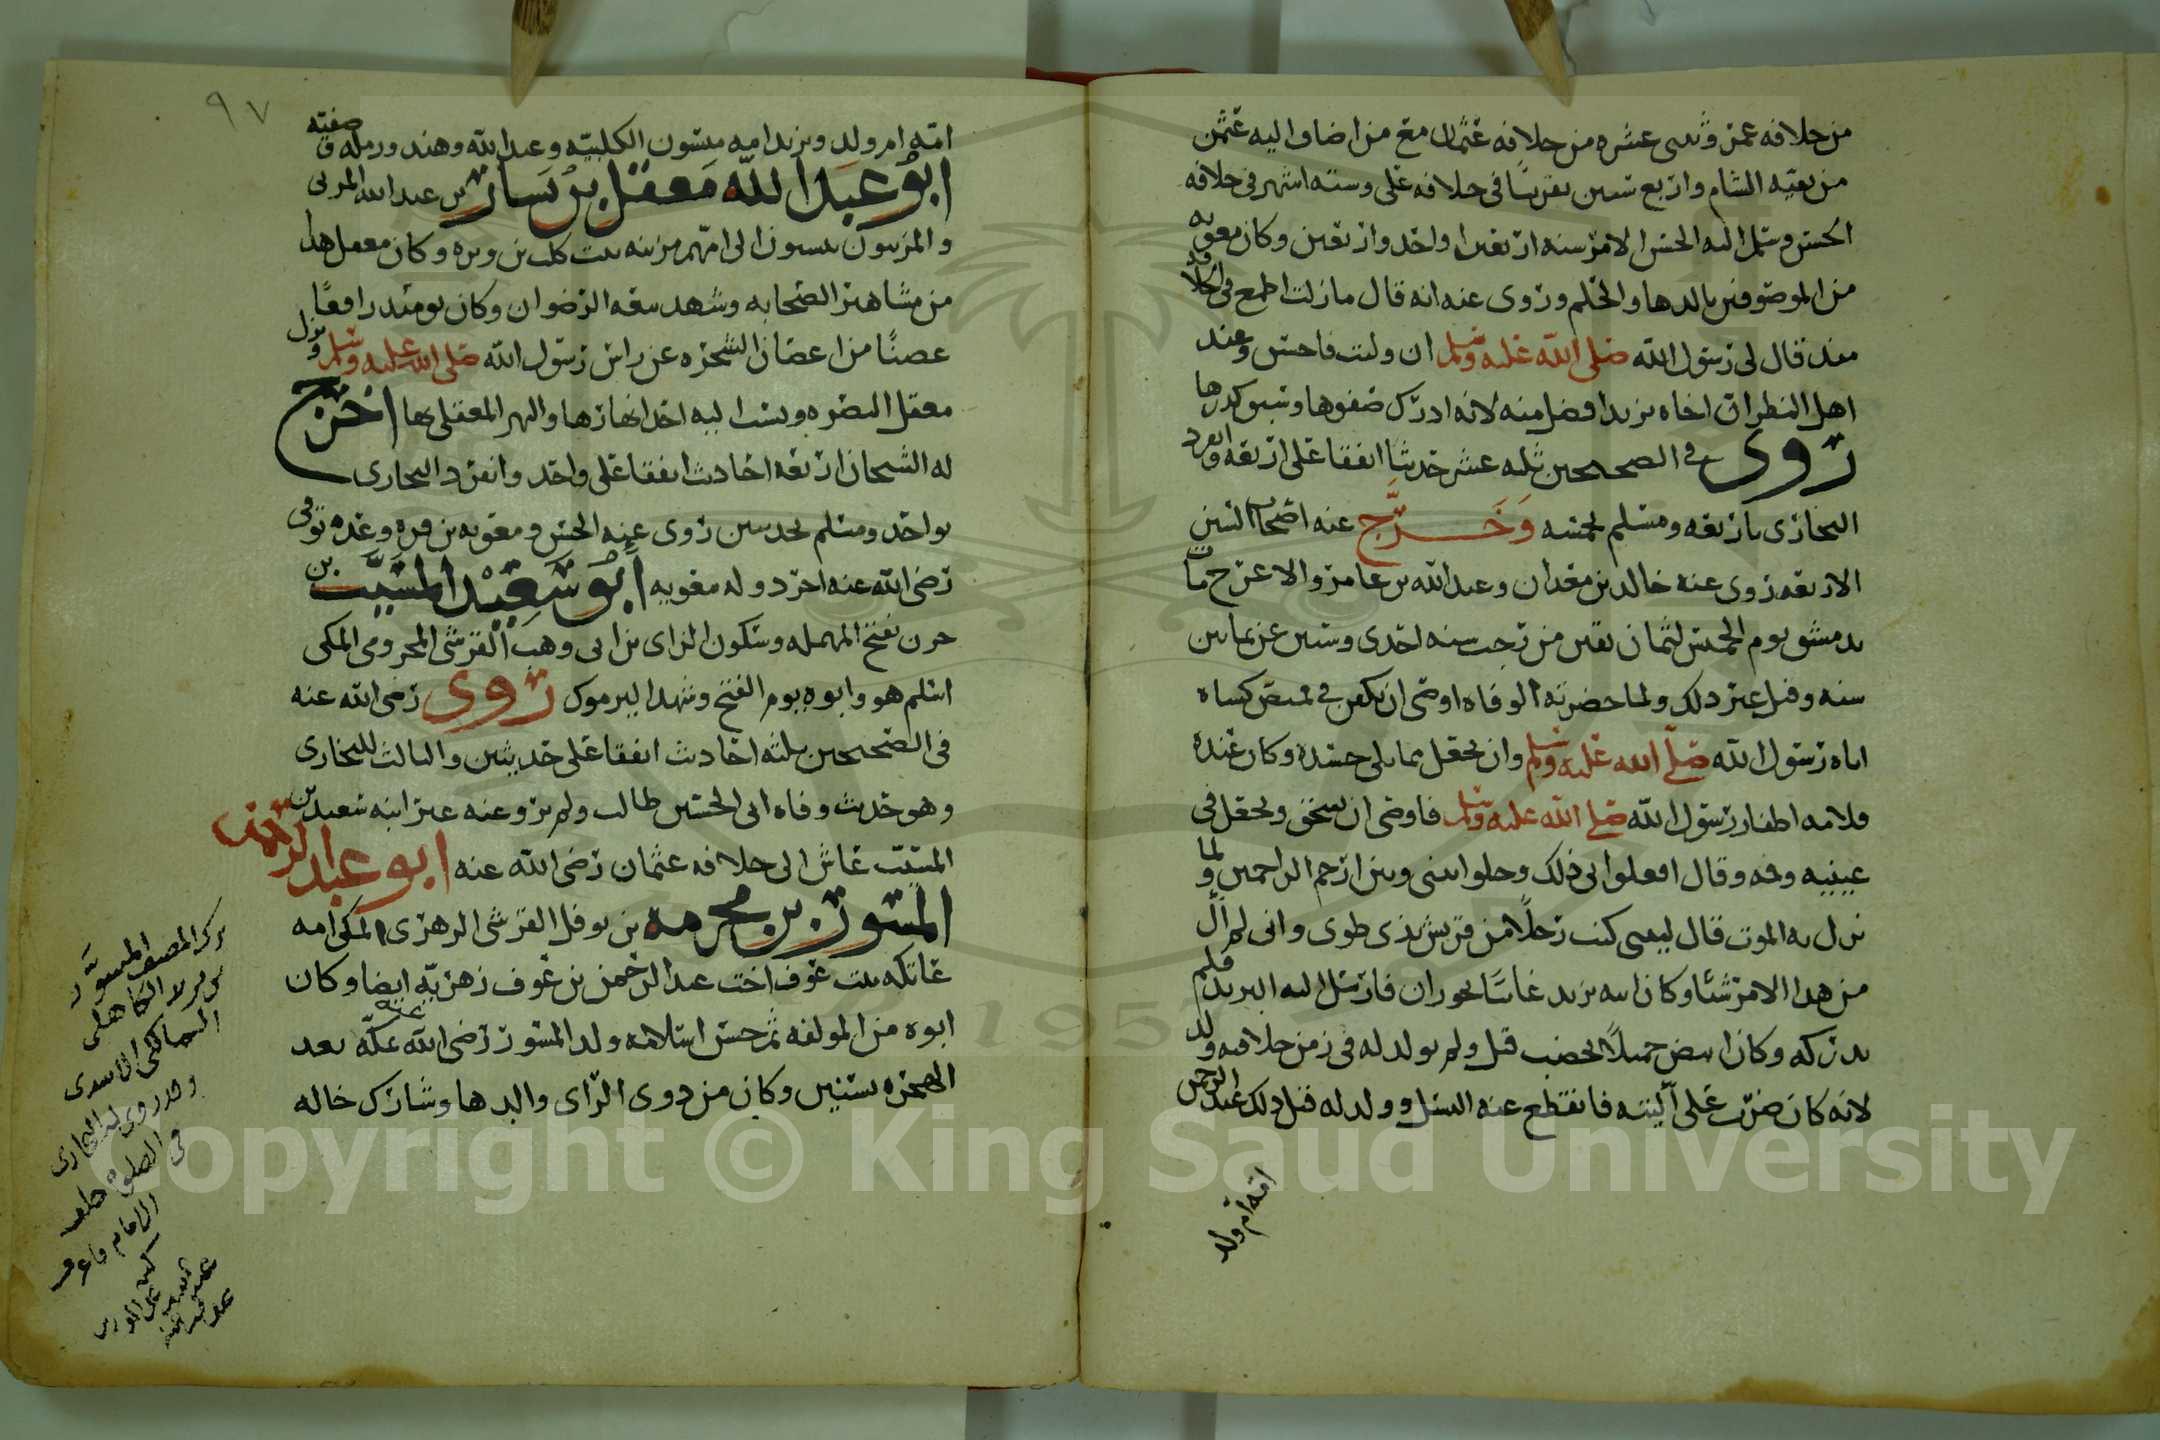 من خلافه عمر وثنتى عشره من خلافه عثمان مع من اضاف اليه عثمن
من بقيه الشام واربع سنين تقريبًا فى خلافه على وسته اشهر فى خلافه
الحسن وسلم اليه الحسن الامر سنه اربعين او احد واربعين وكان معويه
من الموصوفين بالدها والحلم وروى عنه انه قال ما زلت اطمع فى الخلافه
منذ قال لى رسول الله صلى الله عليه وسلم ان وليت فاحسن وعند
اهل النظر ان اخاه يزيد افضل منه لانه ادرك صفوها وسبق كدرها
روى فى الصحيحين ثلثه عشر حديثا اتفقا على اربعه وانفرد
البخارى باربعه ومسلم بخمسه وَخَرَّج عنه اصحاب السنن
الاربعه روى عنه خالد بن معدان وعبد الله بن عامر والاعرج مات
بدمشق يوم الخميس لثمان بقين من رجب سنه احدى وستين عن ثمانين
سنه وقيل غير ذلك ولما حضرته الوفاه اوصى ان يكفن فى قميص كساه
اياه رسول الله صلى الله عليه وسلم وان يجعل مما يلى جسده وكان عنده
قلامه اظفار رسول الله صلى الله عليه وسلم فاوصى ان تسحق وتجعل فى
عينيه وفمه وقال افعلوا بى ذلك وخلوا بينى وبين ارحم الراحمين ولما
نزل به الموت قال ليتنى كنت رجلًا من قريش بذى طوى وانى لم ال
من هذا الامر شيئا وكان ابنه يزيد غائبًا بحوران فارسل اليه البريد فلم
يدركه وكان ابيض جميلًا يخضب قيل ولم يولد له فى زمن خلافته ولد
لانه كان ضرب على اليته فانقطع عنه النسل وولد له قبل ذلك عبد الرحمن
امه ام ولد
٩٧
امه ام ولد ويزيد امه ميسون الكلبيه وعبد الله وهند ورمله وصفيه
ابو عبد الله معقل بن يسار بن عبد الله المزنى
والمزنيون ينسبون الى امهم مزينه بنت كلب بن وبره وكان معقل هذا
من مشاهير الصحابه وشهد بيعه الرضوان وكان يومئذ رافعًا
غصنًا من اغصان الشجره عن راس رسول الله صلى الله عليه وسلم ونزل
معقل البصره وينسب اليه احد انهارها والنهر المعقلى بها اخرج
له الشيخان اربعه احاديث اتفقا على واحد وانفرد البخارى
بواحد ومسلم بحديثين روى عنه الحسن ومعويه بن قره وغيره توفى
رضى الله عنه اخر دوله معويه ابو سعيد المسيب بن
حزن بفتح المهمله وسكون الزاى بن ابى وهب القرشى المخزومى المكى
اسلم هو وابوه يوم الفتح وشهد اليرموك روى رضى الله عنه
فى الصحيحين ثلثه احاديث اتفقا على حديثين والثالث للبخارى
وهو حديث وفاه ابى الحسين طالب ولم يرو عنه غير ابنه سعيد بن
المسيب عاش الى خلافه عثمان رضى الله عنه ابو عبد الرحمن
المسور بن مخرمه بن نوفل القرشى الزهرى المكى امه
عاتكه بنت عوف اخت عبد الرحمن بن عوف زهريه ايضا وكان
ابوه من المولفه ثم حسن اسلامه ولد المسور رضى الله عنه بمكه بعد
الهجره بسنتين وكان من ذوى الراى والدها وشارك خاله
ترك المصنف المسور
بن يزيد الكاهلى
المالكى الاسدى
وقد روى له البخارى
فى الصلوة خلف
الامام
Copyright © King Saud University
1957